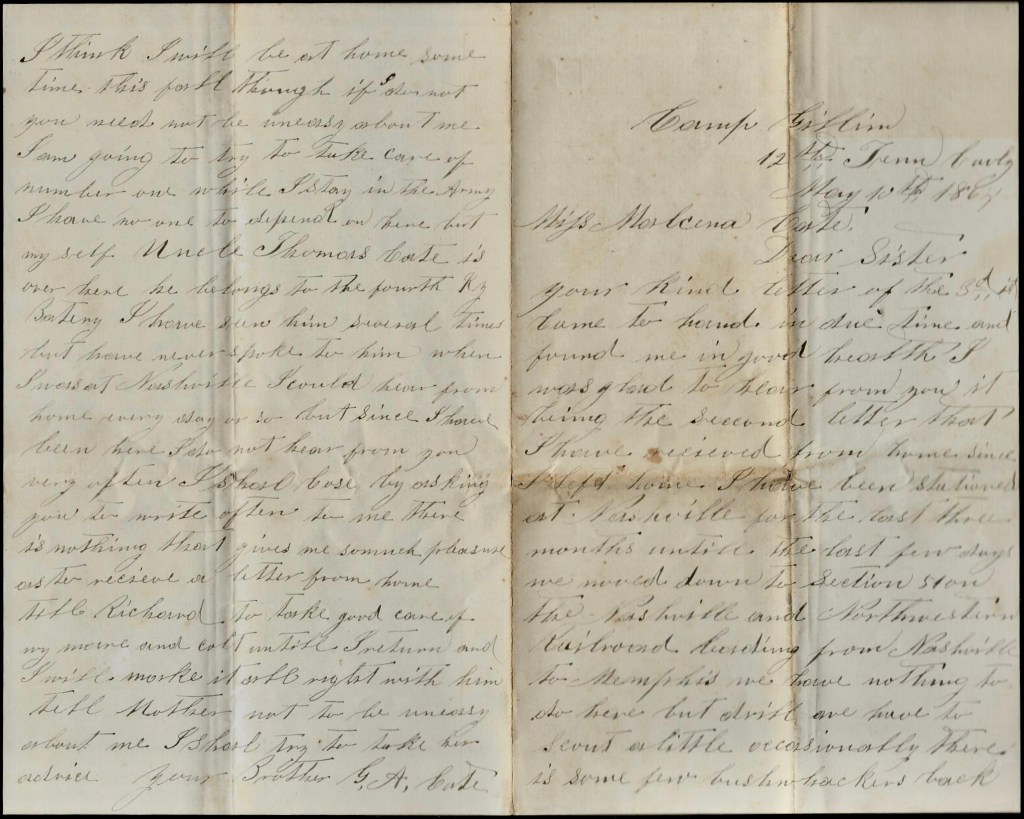 Camp Gillim
12th Tenn Cavly
May 10th 1864
Miss Malcena Cate.
Dear Sister
your kind letter of the 3d it
Came to hand in due time and
found me in good health I
was glad to hear from you it
being the second letter that
I have recieved from home since
I left home I have been stationed
at Nashville for the last three
months untill the last few days
we moved down to Section 51 on
the Nashville and Northwestern
Railroad leading from Nashville
to Memphis we have nothing to
do here but drill we have to
Scout a little occasionally there
is some few bushwhackers back
I think I will be at home some
time this fall though if I do not
you need not be uneasy about me
I am going to try to take care of
number one while I stay in the Army
I have no one to depend on here but
my self Uncle Thomas Cate is
over here he belongs to the fourth Ky
Batery I have seen him several times
but have never spoke to him when
I was at Nashville I could hear from
home every day or so but since I have
been here I do not hear from you
very often I shal Close by asking
you to write often to me there
is nothing that gives me somuch pleasure
as to recieve a letter from home
till Richard to take good care of
my mare and colt untill I return and
I will make it all right with him
tell Mother not to be uneasy
about me I shal try to take her
advice your Brother G. A. Cate